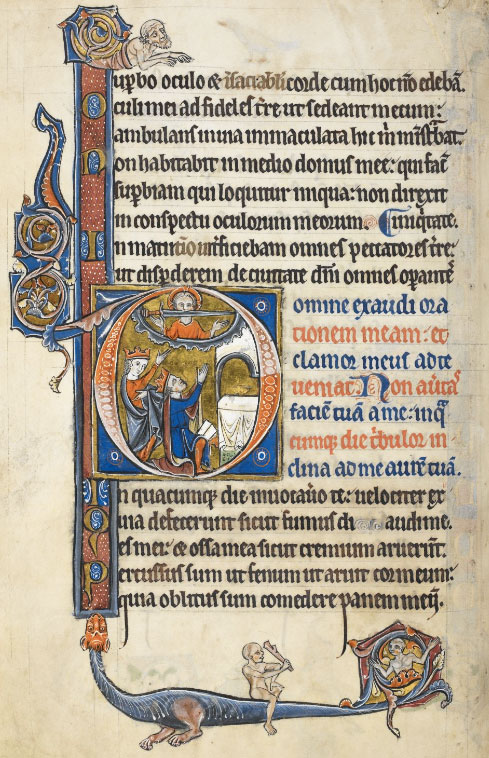 Suꝑbo oculo & īsaciabili corde cum hoc nō edebā.
Oculi mei ad fideles t̄re ut sedeant mecum:
ambulans in uia immaculata hic m̄ minist̄bat.
Non habitabit in medio domus mee: qui fac̄
supbiam qui loquitur iniqua: non direxit
in conspectu oculorum meorum. iniq̄tate.
In matutino int̄ficiebam omnes peccatores t̄re:
ut dispderem de ciuitate dn̄i omnes oꝑant̄
Domine exaudi ora
tionem meam: et
clamor meus ad te
ueniat. Non au̅tas
faciē tuā a me: in q̄
cumq; die t̄bulor in
clina ad me aurē tuā.
In quacumq; die inuocau̅o te: uelociter ex
Quia defecerunt sicut fumus di audi me.
es mei: & ossa mea sicut cremium aruerūt.
Percussus sum ut fenum et aruit cor meum:
quia oblitus sum comedere panem meū.